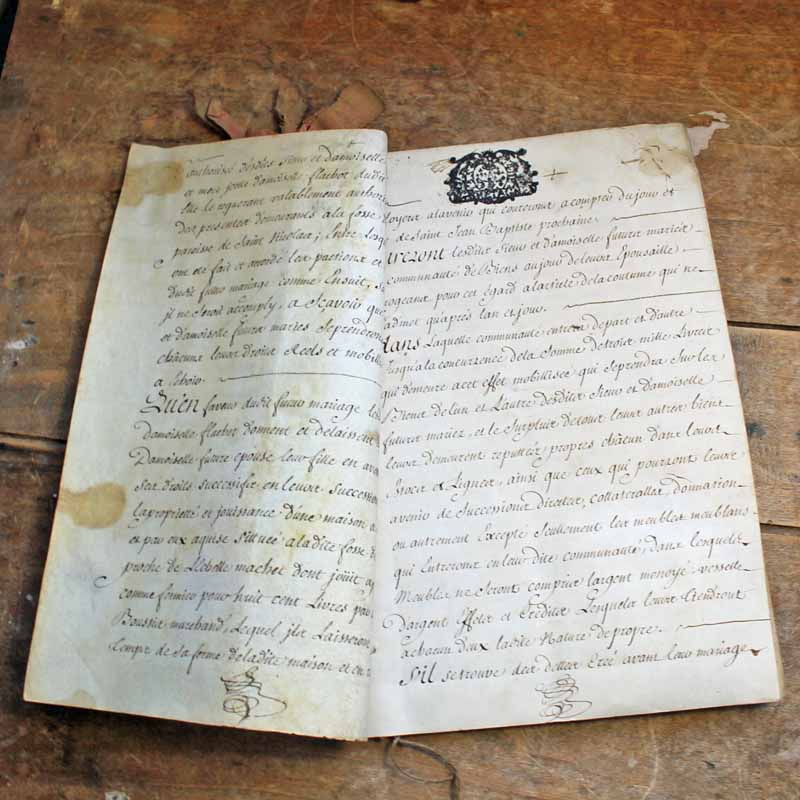 authorisée desdits Sieur et damoiselle
et mere forte damoiselle flachot dudit
elle le requerant valablement authori
dus presentes demeurants a la fosse
paroisse de Saint Nicolas; Entre lesq
ont été fait et accordé les pactions et
dudit futur mariage comme Ensuit, S
jl ne Seroit accomply, a Scavoir que
et d'amoiselle futurs mariés Se prendront
châcuns leurs droits Reels et mobili
a Echoir.
Qu'en faveur dudit futur mariage les
Damoiselle flachot donnent et delaissent
Damoiselle future epouse leur fille en ava
Ses droits successifs en leurs succession
la proprieté et jouissance d'une maison a
et par eux aquise situeé a ladite fosse
proche de L'Echelle machet dont joüit a
comme fermier pour huit cent Livres pour
marchand, Lequel jls Laisseront
temps de Sa ferme de ladite maison et en
loyers a l'avenir qui coureront a compter du jour et
de Saint Jean Baptiste prochaine.
lesdits Sieur et d'amoiselle futurs mariés
communauté de Biens au jour de leurs Epousailles
rogeans pour cet égard a l'article de la coutume qui ne
admet qu'apres l'an et jour.
Dans Laquelle communauté entrera de part et d'autre
jusqu'a la concurrence de la Somme de trois mille Livres
qui demeure a cet effet mobilisée qui Se prendra Sur les
Biens de l'un et L'autre desdits Sieur et Damoiselle
futurs mariez, et le Surplus de tous leurs autres biens
leurs demeurent reputtéz propres châcun dans leurs
Estocs et Lignes, ainsi que ceux qui pouront leurs
avenir de Successions directes, collateralles, donnations
ou autrement Excepté Seullement les meubles meublans
qui Entreront en leur dite communauté, dans lesquels
Meubles ne Seront compris l'argent monoyé vesselle
D'argent Effets et Créditer Lesquels leurs tiendront
a châcun d'eux ladite Nature de propre.
S'il se trouve des dettes Créé avant leur mariage